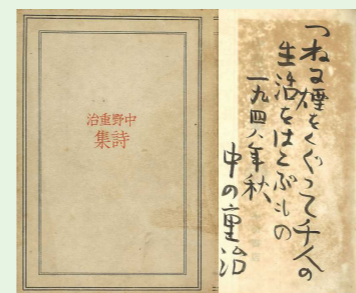 中野重治
詩集
つねに煙をくぐつて千人の
生活をはこぶもの
一九四八年秋、
中の重治